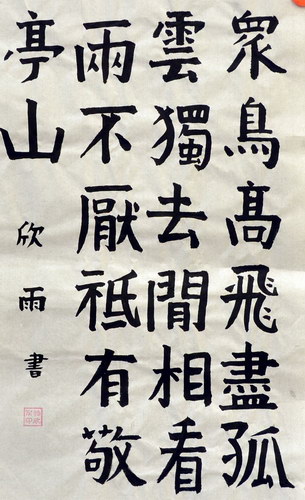 眾鳥髙飛盡孤
雲獨去閒相看
兩不厭祗有敬
亭山
欣雨書